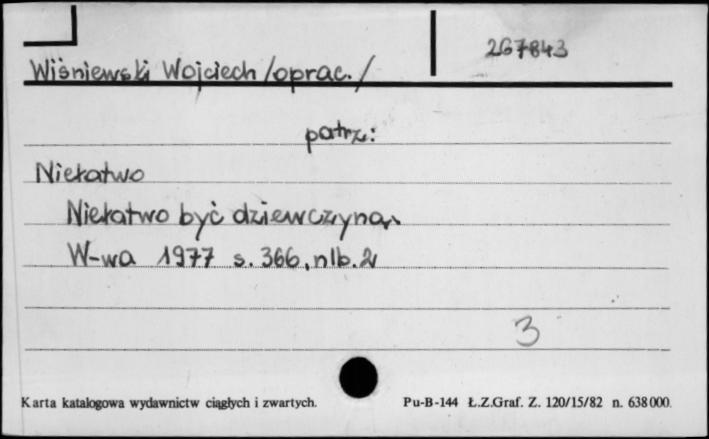 267843
Wiśniewski Wojciech /oprac./
patrz:
Niełatwo
Niełatwo być dziewczyną
W-wa 1977 s. 366, nlb. 2
3
Karta katalogowa wydawnictw ciągłych i zwartych. Pu-B-144 Ł.Z.Graf. Z. 120/15/82 n. 638000.